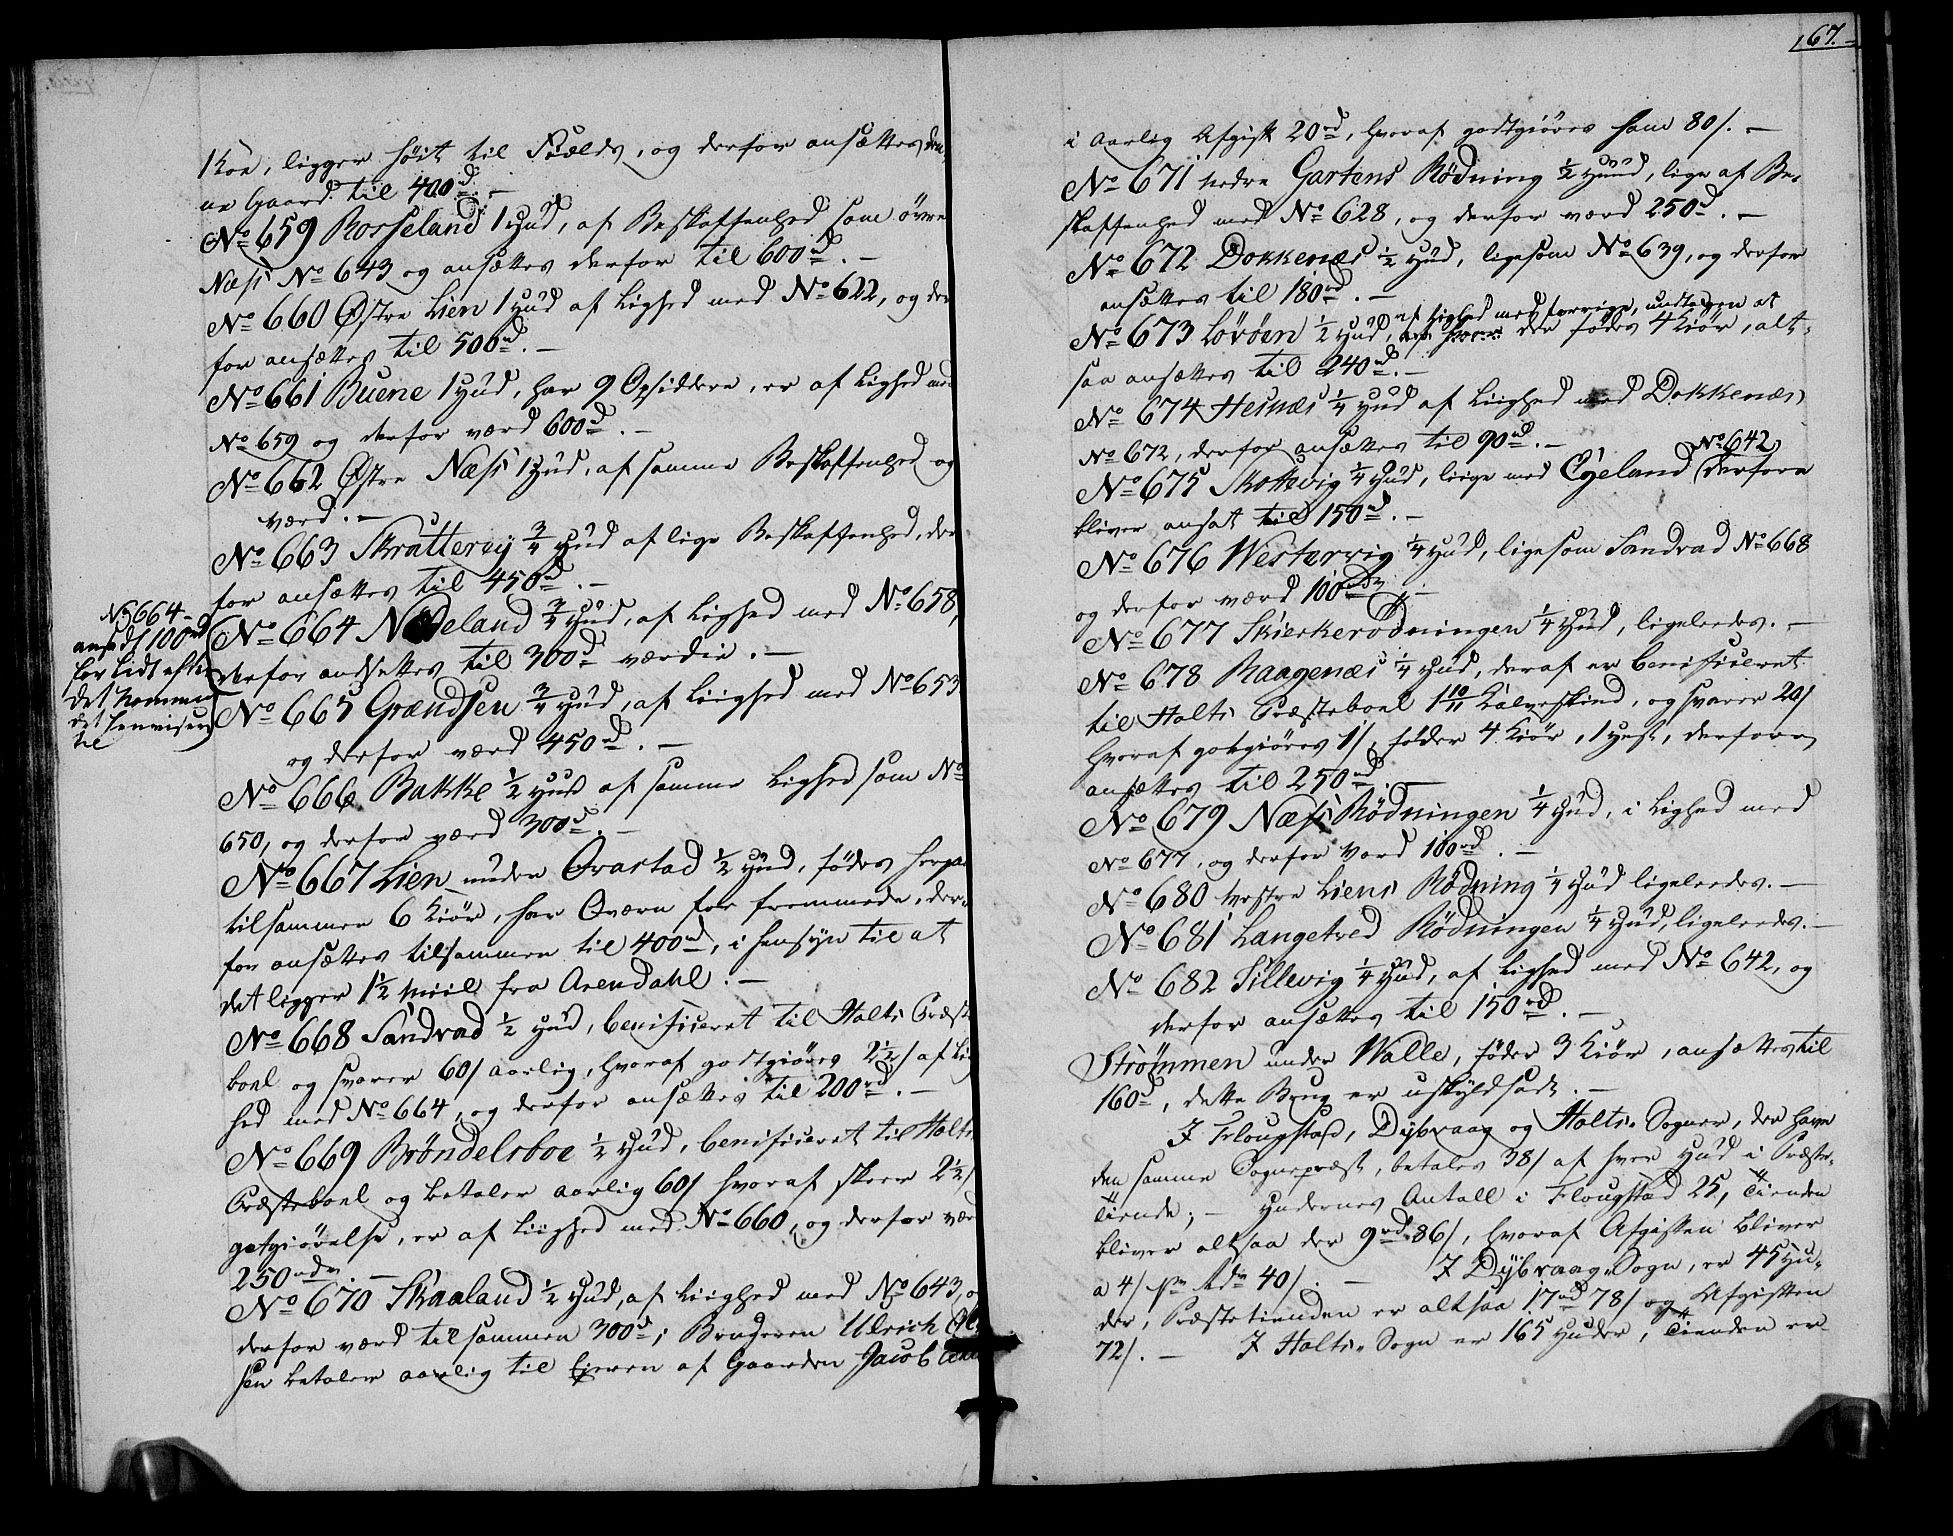 1 Koe, ligger høit til Fields, og derfor ansættes den-
ne Gaard til 400rd. –
No 659 Rosseland 1 Hud, af Beskaffenhed som øvre
Næss No 643 og ansættes derfor til 600rd. –
No 660 Østre Lien 1 Hud af Lighed med No 622, og der
for ansættes til 500rd. –
No 661 Buene 1 Hud, har 9 Opsiddere, er af Lighed med
No 659 og derfor værd 600rd. –
No 662 Østre Næss 1 Hud, af samme Beskaffenhed og
værd. –
No 663 Skratterey 3/4 Hud af lige Beskaffenhed, der
for ansættes til 450rd. –
No 664 –
ansadt 100rd
for lidt efter
det Nommer
det henviser
til
No 664 Nedeland 3/4 Hud, af Lighed med No 658,
derfor andsættes til 300rd værdie. –
No 665 Grændsen 3/4 Hud, af Liighed med No 653
og derfor værd 450rd. –
No 666 Bakke 1/2 Hud af samme Lighed som No
650, og derfor værd 300rd. –
No 667 Lien under Qvastad 1/2 Hud, fødes herpaa
tilsammen 6 Kiør, har Qværn for fremmede, der-
for ansættes tilsammen til 400rd, i hensyn til at
det ligger 1 1/2 Miil fra Arendahl. –
No 668 Sandvad 1/2 Hud, benificeret til Holts Præste
boel og svarer 60/ aarlig, hvoraf godtgiøres 2 1/2/ af Lig
hed med No 664, og derfor ansættes til 200rd. –
No 669 Brøndelsboe 1/2 Hud, benificeret til Holts
Præsteboel og betaler aarlig 60/ hvoraf skeer 2 1/2/
gotgiørelse, er af Liighed med No 660, og derfor vær
250rdr. –
No 670 Skaaland 1/2 Hud, af Liighed med No 643, og
derfor værd tilsammen 300rd; Brugeren Ulrich
sen betaler aarlig til Eieren af Gaarden Jacob
167. –
i aarlig Afgift 20rd, hvoraf godtgiøres ham 80/. –
No 671 nedre Gartens Rødning 1/2 Huud, lige af Be-
skaffenhed med No 628, og derfor værd 250rd. –
No 672 Dokkenæs 1/2 Hud, ligesom No 639, og derfor
ansættes til 180rd. –
af Lighed med forrige, undtagen at
No 673 Løvøen 1/2 Hud, der fødes 4 Kiør, alt-
saa ansættes til 240rd. –
No 674 Hesnæs 1/4 Hud af Liighed med Dokkenæs
No 672, derfor ansættes til 90rd. –
No 642
No 675 Skottevig 1/4 Hud, liige med Eyeland derfore
bliver ansat til 150rd. –
No 676 Westervig 1/4 Hud, ligesom Sandvad No 668
og derfor værd 100rdr. –
No 677 Skierkerodningen 1/4 Hud, ligeledes. –
No 678 Raagenæs 1/4 Hud, deraf er benificeret
til Holts Præsteboel 1 10/11 Kalveskind, og svarer 20/
hvoraf gotgiøres 1/, føder 4 Kiør, 1 Hest, derfore
ansættes til 250rd. –
No 679 Næss Rødningen 1/4 Hud, i Lighed med
No 677, og derfor værd 100rd. –
No 680 Westre Liens Rødning 1/4 Hud ligeledes. –
No 681 Langetved Rødningen 1/4 Hud, ligeledes. –
No 682 Sillevig 1/4 Hud, af Lighed med No 642, og
derfor ansættes til 150rd. –
Strømmen under Walle, føder 3 Kiør, ansættes til
160rd, dette Brug er uskyldsadt. –
I Flougstad, Dybvaag og Holts Sogner, der have
den samme Sognepræst, betales 38/ af hver Hud i Præste-
Tiende; – Hudernes Antall i Flougstad 25, Tienden
bliver altsaa der 9rd 86/, hvoraf Afgiften bliver
a 4/ pr rdr 40/. – I Dybvaag Sogn, er 45 Hu-
der, Præstetienden er altsaa 17rd 78/ og Afgiften
72/. – I Holts Sogn er 165 Huder, Tienden er